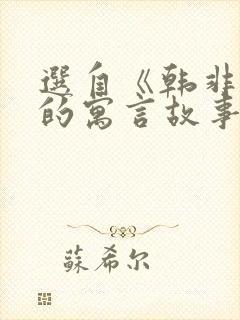 選自《韩非
的寓言故事
蘇希尔